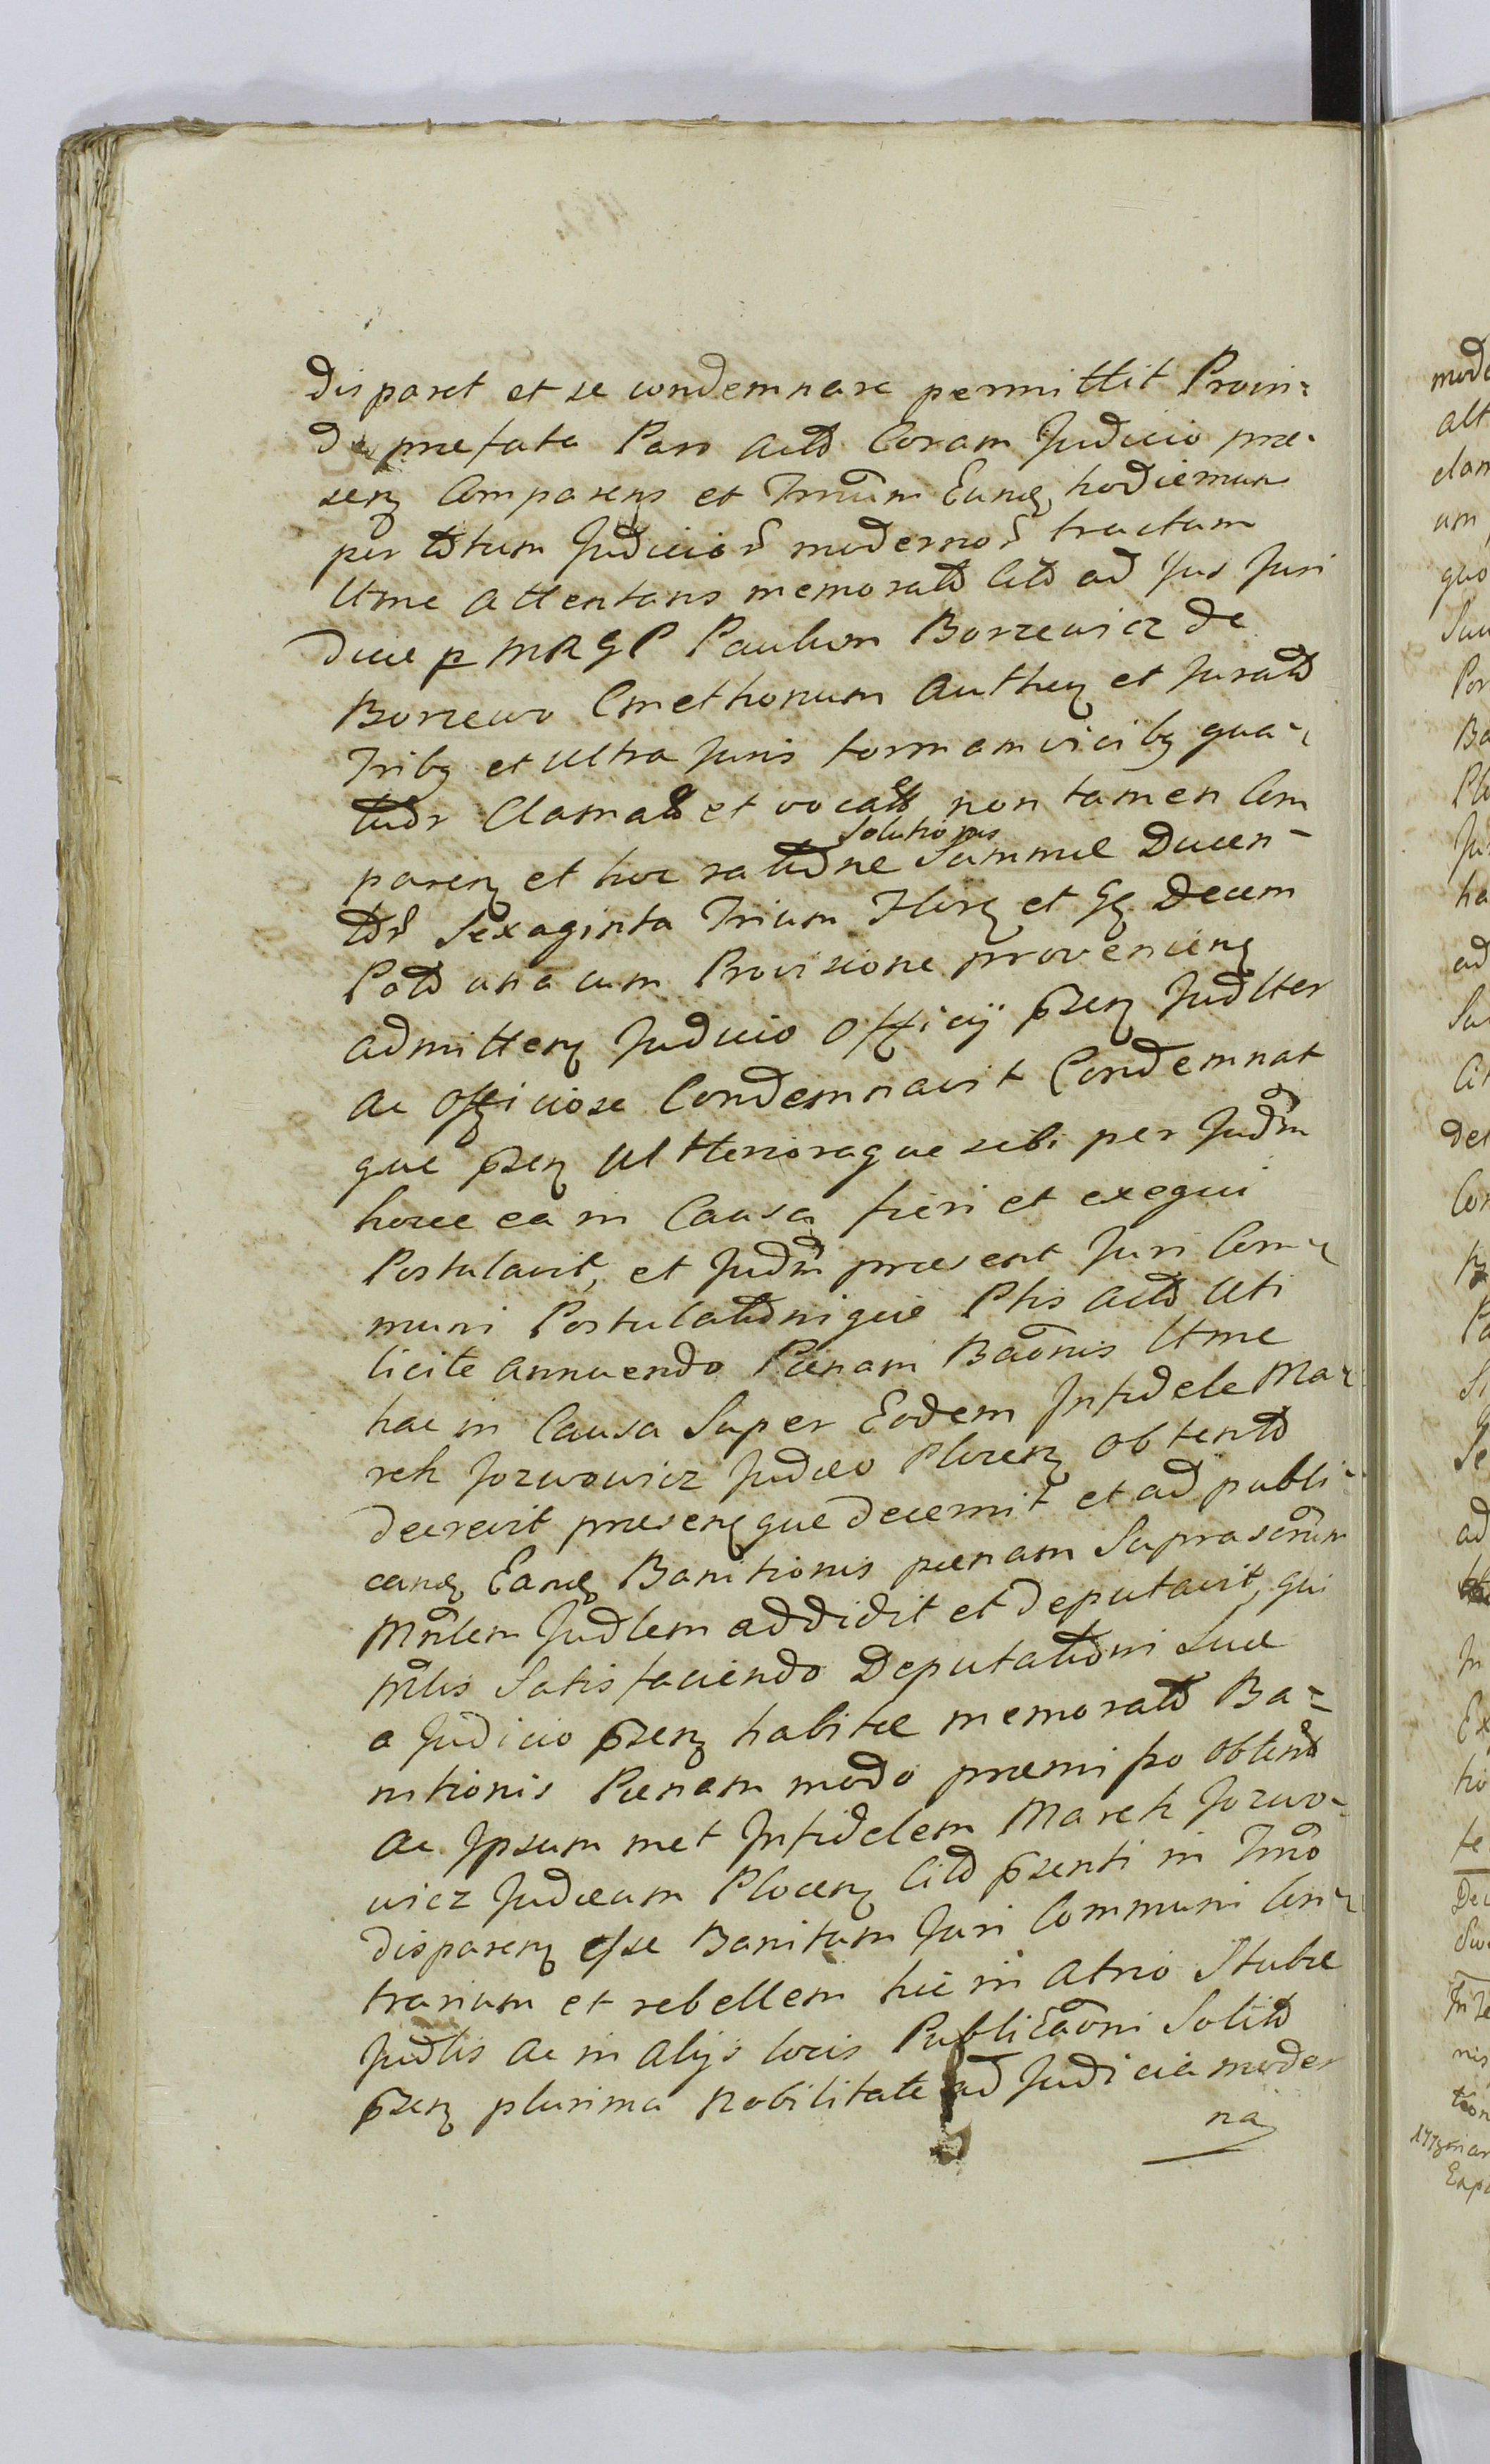 disparet et se condemnare permittit Proin=
de praefata Pars actō Coram Judicio prae-
senȝ Comparens et Trnūm Eundȝ hodiernum
per totum Judicioꝝ modernoꝝ tractum
Ltme attentans memoratō Citō ad Jus Juri
dice p MRGP Paulum Borzewicz de
Borzewo Cmethonum Authenȝ et Juratō
Tribȝ et ultra Juris formam vicibȝ qua-
tuor Clamatō et vocatō non tamen Com
parenȝ et hoc ratione Solutionis Summae Ducen-
toꝝ Sexaginta Trium Florȝ et Gȝ Decem
Polō una cum Provisione provenienȝ
admittenȝ Judicio Officij pr̄senȝ Judlter
ac Officiose Condemnavit Condemnat
que pr̄senȝ Ulterioraque sibi per Judm̄
hocce ea in Causa fieri et exequi
Postulavit, et Judm̄ praesens Juri Com-
muni Postulationique Ptis actō Uti
licite annuendo Paenam Baōnis Ltme
hac in Causa Super Eodem Infidele Ma-
rek Jozwowicz Judaeo Plocenȝ obtentō
decrevit praesenȝque decernit et ad publi-
candȝ Eandȝ Banitionis paenam Suprascrūm
Mnl̄em Judlem addidit et deputavit, qui
Mnl̄is Satisfaciendo Deputationi Suae
a Judicio pr̄senȝ habitae memoratō Ba=
nitionis Paenam modo praemisso obtentō
ac Ipsum met Infidelem Marek Jozwo-
wicz Judaeum Plocenȝ Citō pr̄senti in Trnō
disparenȝ esse Banitum Juri Communi Con-
trarium et rebellem hic in Atrio Stubae
Judlis ac in Alijs locis Publicaōni Solitō
pr̄senȝ plurima Nobilitate ad Judicia moder
na